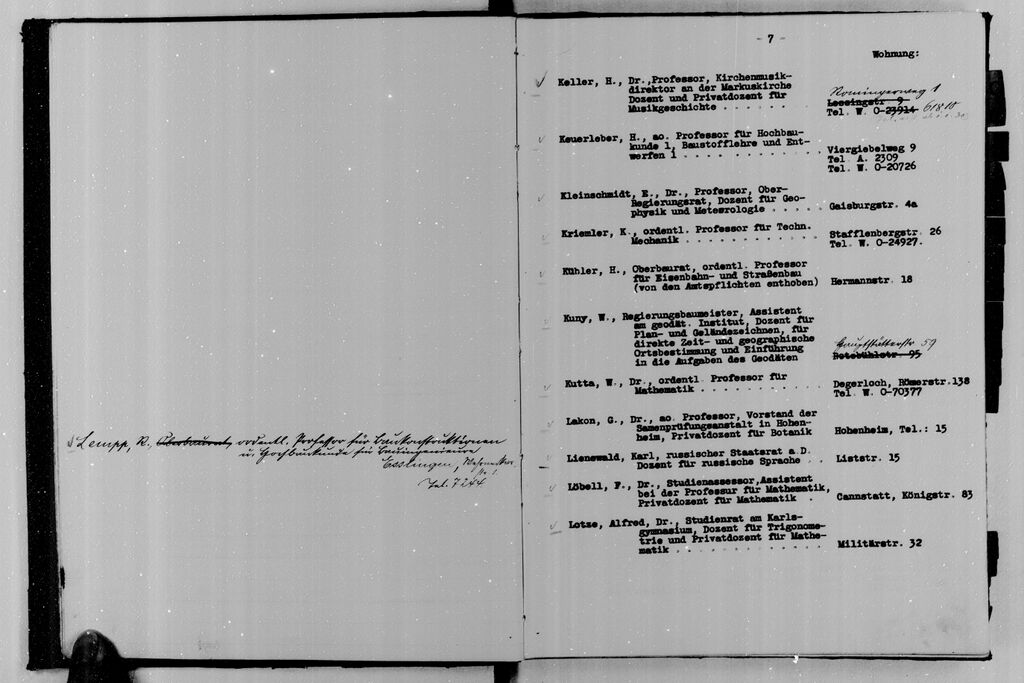 Lempp, R., Oberbaurat, ordentl. Professor für Baukonstruktionen
u. Hochbaukunde für Bauingenieure
Esslingen,
Tel. 7244
- 7 -
Wohnung:
Keller, H., Dr.,Professor, Kirchenmusik-
direktor an der Markuskirche
Dozent und Privatdozent für
Musikgeschichte . . . . . . .
Romingerweg 1
Lessingstr 9
Tel. W. O-23914 61810
Keuerleber, H., ao. Professor für Hochbau-
kunde 1, Baustofflehre und Ent-
werfen 1 . . . . . . . . . . .
Viergiebelweg 9
Tel. A. 2309
Tel. W. O-20726
Kleinschmidt, E., Dr., Professor, Ober-
Regierungsrat, Dozent für Geo-
physik und Meteorologie . . . . . Gaisburgstr. 4a
Kriemler, K., ordentl. Professor für Techn.
Mechanik . . . . . . . . . . .
Stafflenbergstr. 26
Tel. W. O-24927.
Kübler, H., Oberbaurat, ordentl. Professor
für Eisenbahn- und Straßenbau
(von den Amtspflichten enthoben) Hermannstr. 18
Kuny, W., Regierungsbaumeister, Assistent
am geodät. Institut, Dozent für
Plan- und Geländezeichnen, für
direkte Zeit- und geographische
Ortsbestimmung und Einführung
in die Aufgaben des Geodäten
Hauptstätterstr 59
Rotebühlstr 95
Kutta, W., Dr., ordentl. Professor für
Mathematik . . . . . . . . . .
Degerloch, Römerstr.138
Tel. W. O-70377
Lakon, G., Dr., ao. Professor, Vorstand der
Samenprüfungsanstalt in Hohen-
heim, Privatdozent für Botanik Hohenheim, Tel.: 15
Lienewald, Karl, russischer Staatsrat a.D.
Dozent für russische Sprache . . Liststr. 15
Löbell, F., Dr., Studienassessor,Assistent
bei der Professur für Mathematik,
Privatdozent für Mathematik . Cannstatt, Königstr. 83
Lotze, Alfred, Dr., Studienrat am Karls-
gymnasium, Dozent für Trigonome-
trie und Privatdozent für Mathe-
matik . . . . . . . . . . . . Militärstr. 32